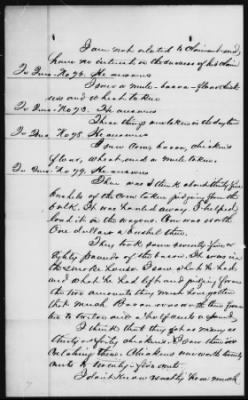 I am not related to claimant and
have no interest in the success of his claim
To Ques. No 72. He answers
I saw a mule - bacon - flour chick
ens and wheat taken
To Ques. No 73. He answers
These things were taken in the daytime
To Ques No 75 He answers
I saw corn, bacon, chickens
flour, wheat and a mule taken.
To Ques. No 77. He answers
There was I think about thirty five
bushels of the corn taken judging from the
bulk. It was hauled away. I helped
load it in the wagons. Corn was worth
One dollar a bushel then.
They took some seventy five or
Eighty pounds of the bacon. It was in
the smoke house. I saw what he had
and what he had left and judging from
the two amounts they must have gotten
that much. Bacon was worth then from
to twelve and a half cents a pound.
I think that they got as many as
thirty or forty chickens. I saw them
catching them. Chickens were worth twenty
cents to twenty-five cents.
I don't know exactly how much